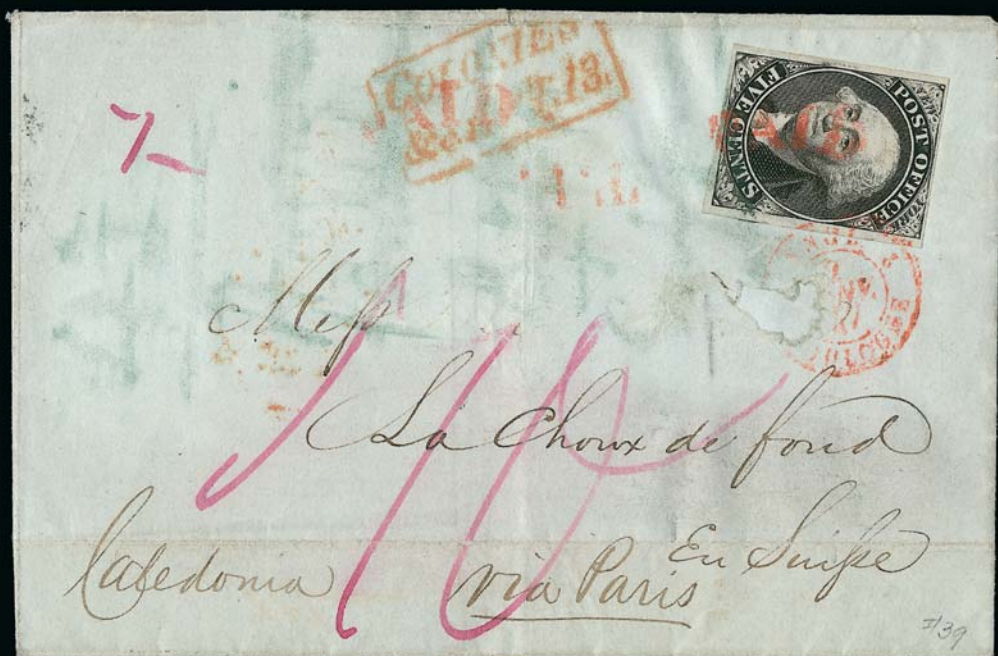 COLONIES
&c. ART. 13.
PAID
POST OFFICE
FIVE CENTS
BOULOGNE
7
Mess
La Choux de fond
En Suisse
Caledonia via Paris
39